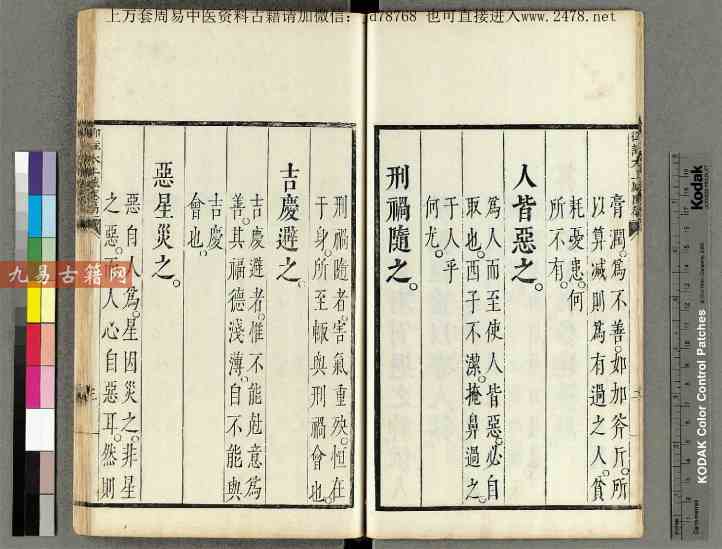 上万套周易中医资料古籍请加微信：
d78768 也可直接进入www.2478.net
膏潤。為不善。如加斧斤。所
以算减則為有過之人。貧
耗憂患。何
所不有。
人皆惡之。
為人而至使人皆惡。必自
取也。西子不潔。掩鼻過之。
于人乎
何尤。
刑禍隨之。
刑禍隨者。害氣重殃。恒在
于身。所至輒與刑禍會也。
吉慶避之。
吉慶避者。惟不能勉意為
善。其福德淺薄。自不能與
吉慶
會也。
惡星災之。
惡自人為。星因災之。非星
之惡。而人心自惡耳。然則
九易古籍网
Kodak
KODAK Color Control Patches